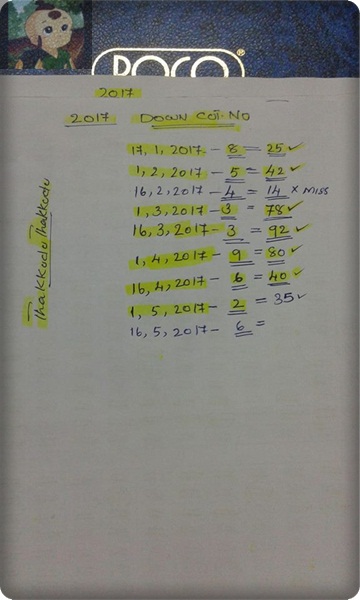 POCO®
2017
2017 DOWN COT-NO
17, 1, 2017 - 8 = 25 ✓
1, 2, 2017 - 5 = 42 ✓
16, 2, 2017 - 4 = 14 × MISS
1, 3, 2017 - 3 = 78 ✓
16, 3, 2017 - 3 = 92 ✓
1, 4, 2017 - 9 = 80 ✓
16, 4, 2017 - 6 = 40 ✓
1, 5, 2017 - 2 = 35 ✓
16, 5, 2017 - 6 =
Thakkodu Thakkodu